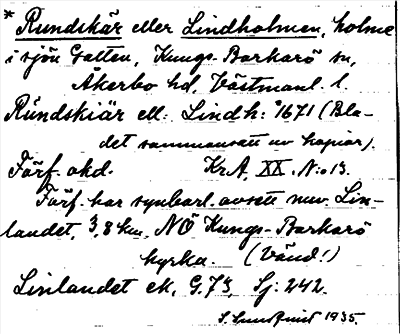 * Rundskär eller Lindholmen, holme
i sjön Galten, Kungs-Barkarö sn,
Åkerbo hd, Västmanl. l.
Rŭndskiär ell. Lindh: 1671 (Bla-
det sammansatt av kopior).
Förf. okd. Kr.A. XX. N:o 13.
Förf. har synbarl. avsett nuv. Lin-
landet, 3,8 km. NÖ Kungs-Barkarö
kyrka. (Vänd!)
Linlandet ek, G. 73, Sj: 242.
S. Lundquist 1935.